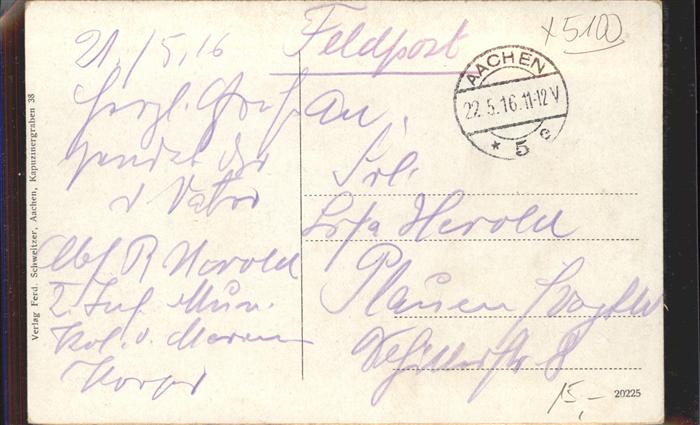 21./5.16
Herzl. Gruß
sendet dir
d Vater
Abs. R Herold
2. Inf. Mun.
Kol. v. Marine
Korps
Feldpost
An
Frl.
Herold
Plauen Vogtld
Schillerstr 8
x 5100
AACHEN
22.5.16.11-12V
* 5 e
Verlag Ferd. Schweitzer, Aachen, Kapuzinergraben 38
20225
15,-